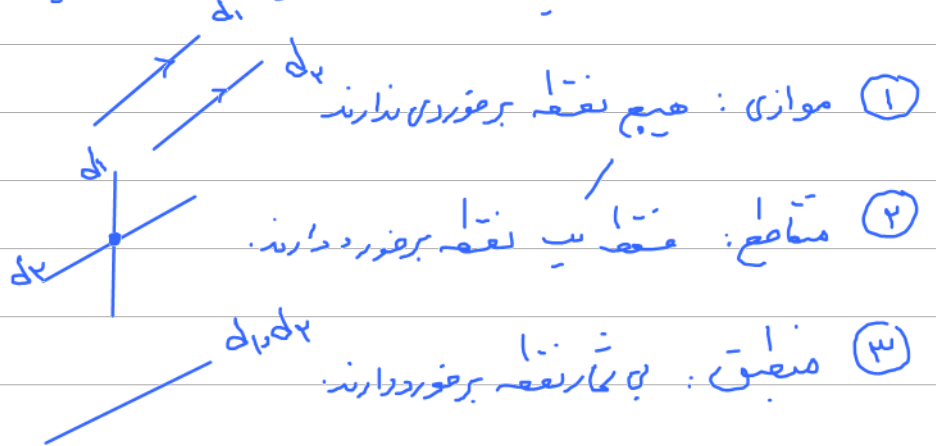 d₁
d₂
① موازی : هیچ نقطه برخوردی ندارند
d₁
② متقاطع : فقط یک نقطه برخورد دارند.
d₂
d₁,d₂
③ منطبق : بی شمار نقطه برخورد دارند.